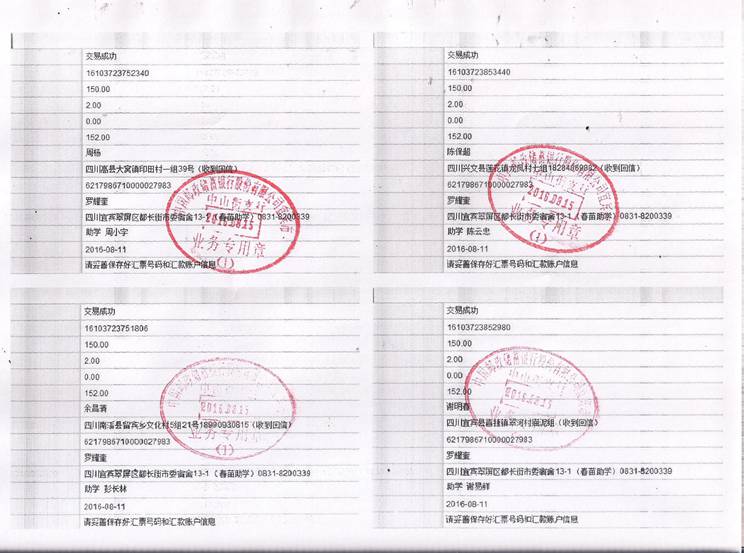 交易成功
16103723752340
150.00
2.00
0.00
152.00
周杨
四川高县大窝镇印田村一组39号（收到回信）
6217986710000027983
罗耀奎
四川宜宾翠屏区都长街市委宿舍13-1（春苗助学）0831-8200339
助学 周小宇
2016-08-11
请妥善保存好汇票号码和汇款账户信息
2016.08.15
业务专用章
(1)
交易成功
16103723853440
150.00
2.00
0.00
152.00
陈保超
四川兴文县莲花镇龙凤村七组18284869882（收到回信）
6217986710000027983
罗耀奎
四川宜宾翠屏区都长街市委宿舍13-1（春苗助学）0831-8200339
助学 陈云忠
2016-08-11
请妥善保存好汇票号码和汇款账户信息
2016.08.15
业务专用章
(1)
交易成功
16103723751806
150.00
2.00
0.00
152.00
余昌清
四川南溪县留宾乡文化村5组21号18990930815（收到回信）
6217986710000027983
罗耀奎
四川宜宾翠屏区都长街市委宿舍13-1（春苗助学）0831-8200339
助学 彭长林
2016-08-11
请妥善保存好汇票号码和汇款账户信息
2016.08.15
业务专用章
(1)
交易成功
16103723852980
150.00
2.00
0.00
152.00
谢明春
四川宜宾县喜捷镇翠河村猫泥组（收到回信）
6217986710000027983
罗耀奎
四川宜宾翠屏区都长街市委宿舍13-1（春苗助学）0831-8200339
助学 谢易鲜
2016-08-11
请妥善保存好汇票号码和汇款账户信息
2016.08.15
业务专用章